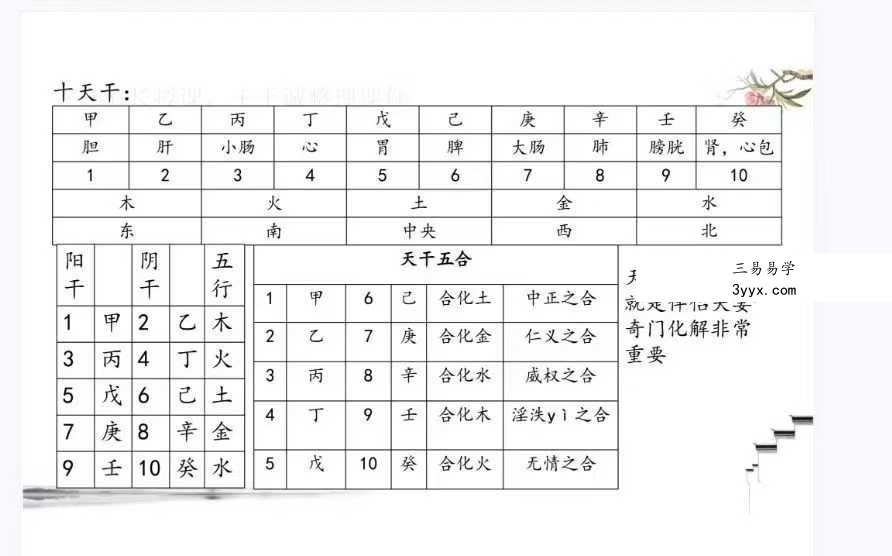 十天干：
甲 乙 丙 丁 戊 己 庚 辛 壬 癸
胆 肝 小肠 心 胃 脾 大肠 肺 膀胱 肾，心包
1 2 3 4 5 6 7 8 9 10
木 火 土 金 水
东 南 中央 西 北
阳干 阴干 五行
1 甲 2 乙 木
3 丙 4 丁 火
5 戊 6 己 土
7 庚 8 辛 金
9 壬 10 癸 水
天干五合
1 甲 6 己 合化土 中正之合
2 乙 7 庚 合化金 仁义之合
3 丙 8 辛 合化水 威权之合
4 丁 9 壬 合化木 淫泆yì之合
5 戊 10 癸 合化火 无情之合
三易易学
3yyx.com
就是伴侣夫妻
奇门化解非常
重要